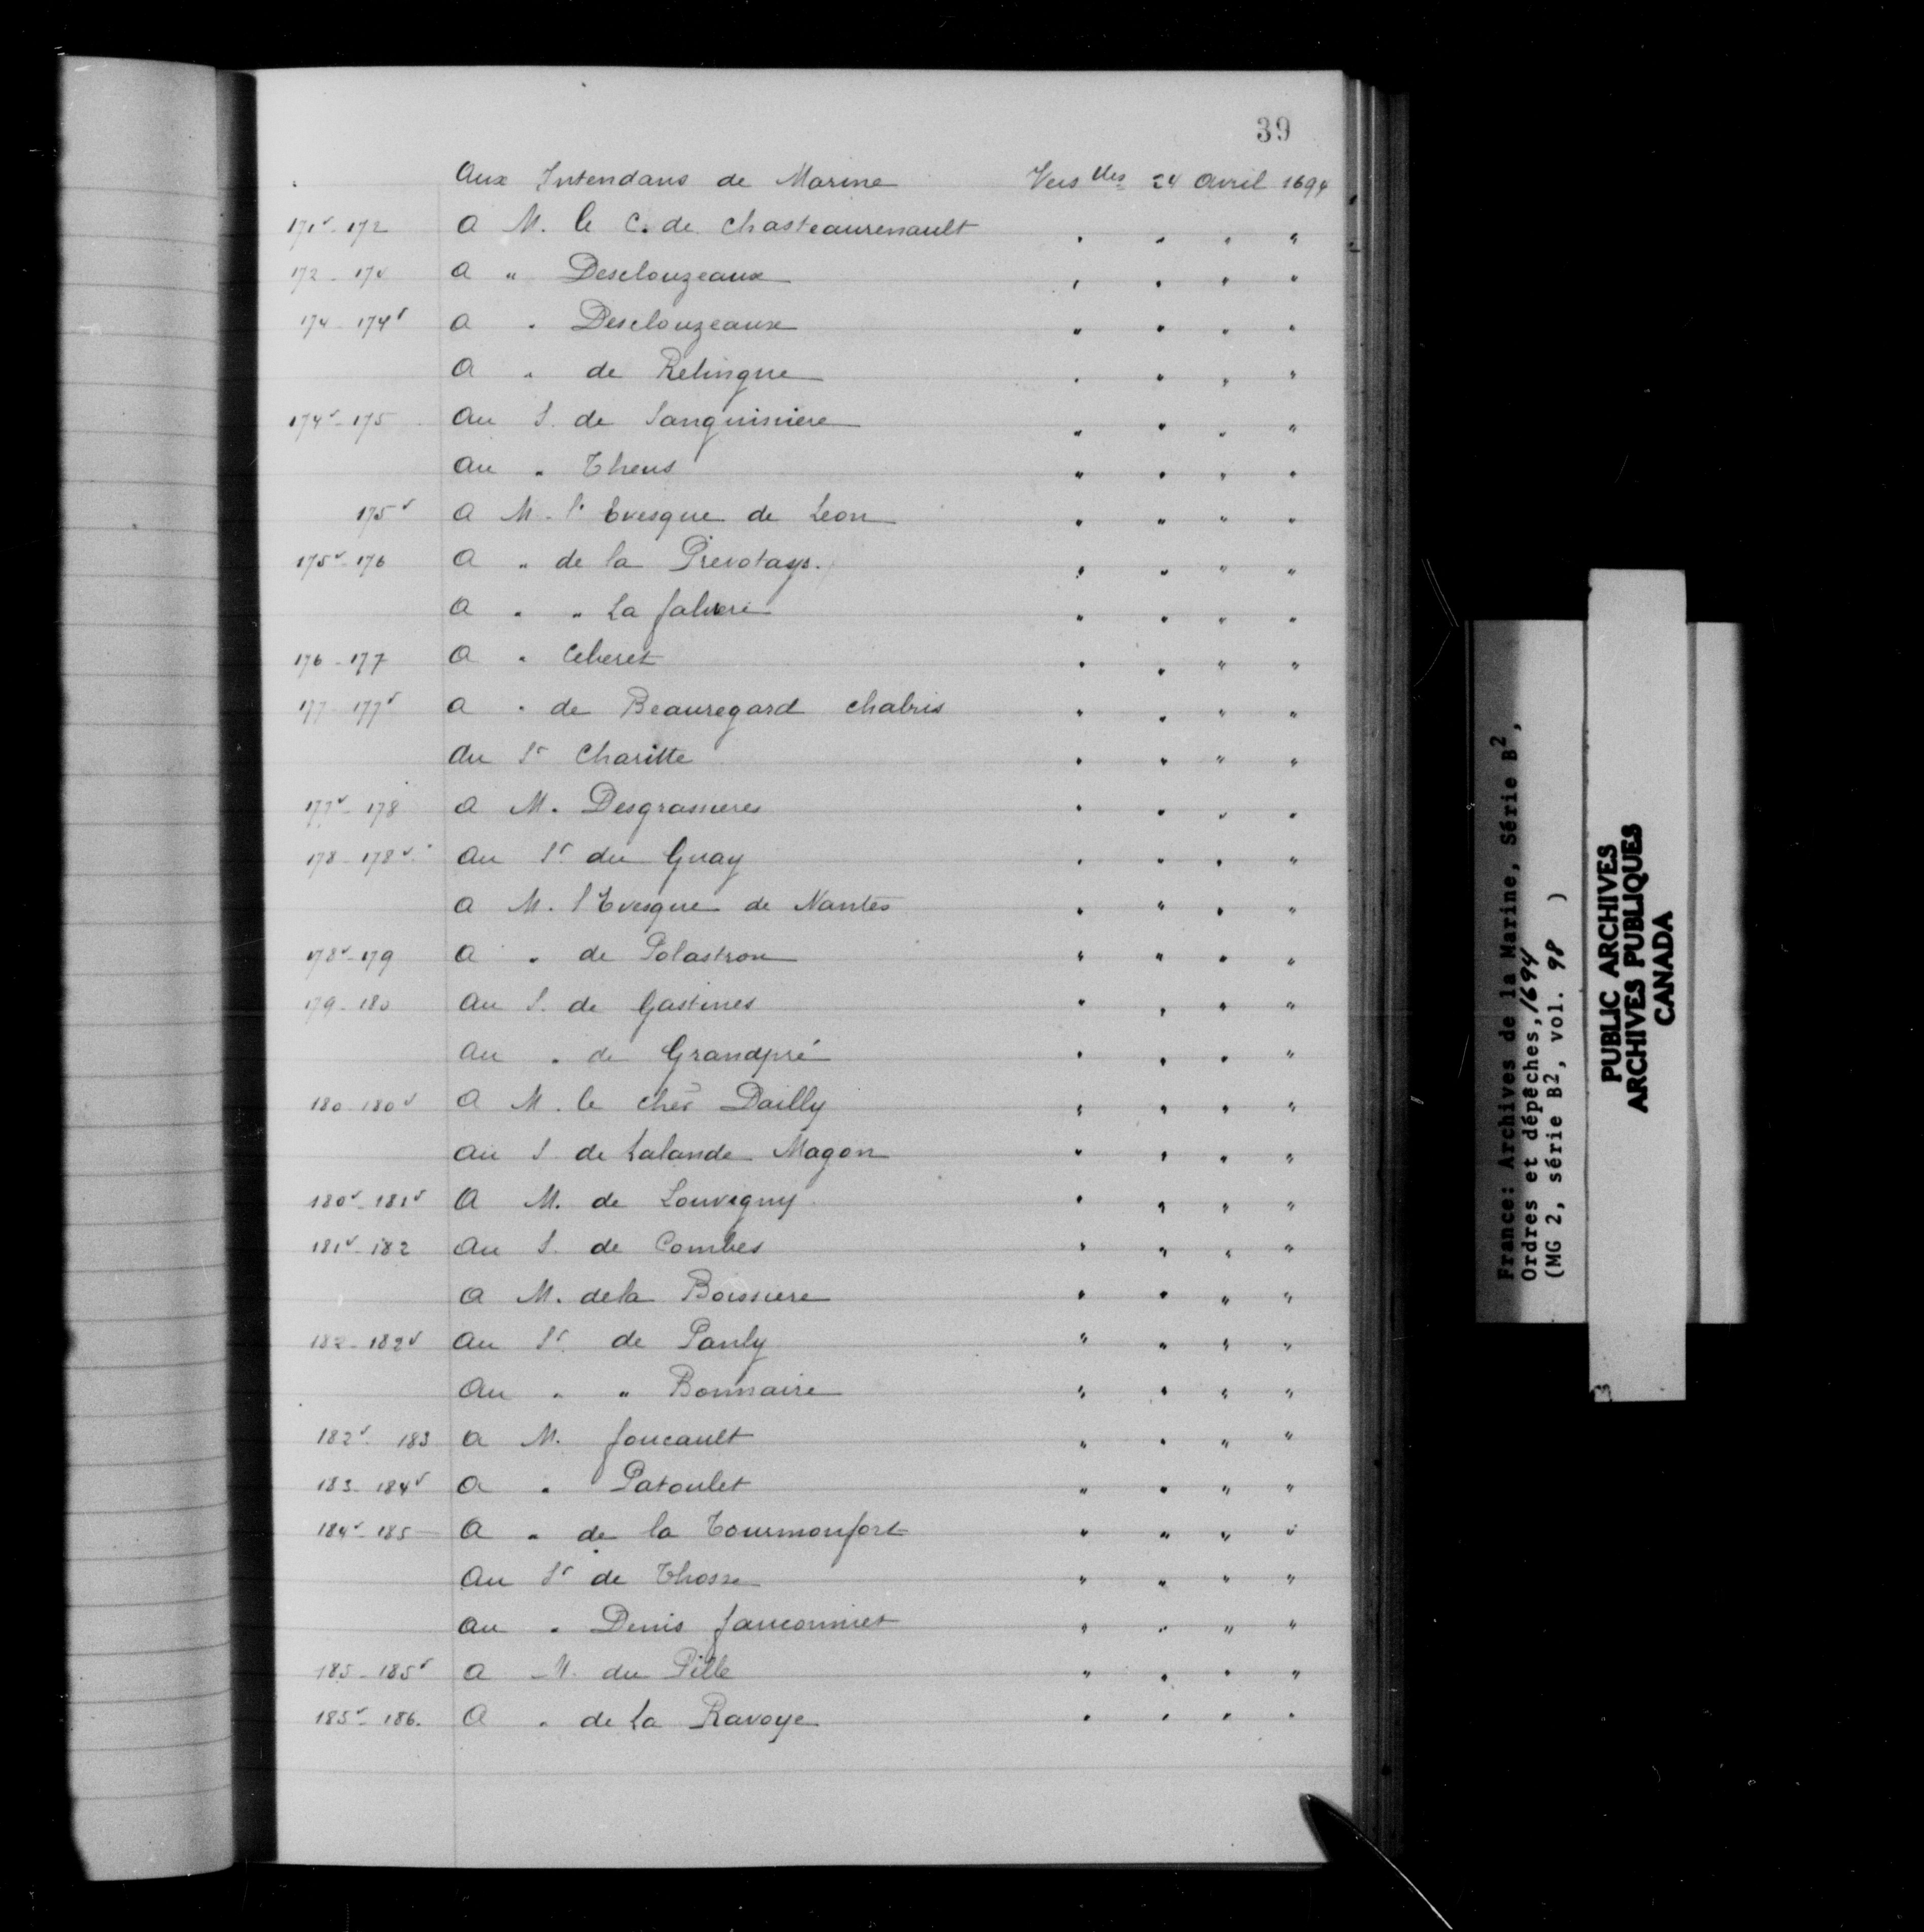 39
Aux Intendans de Marine Vers lles 24 Avril 1694
171v-172 A M. le C. de Chasteaurenault " " " "
172-174 A " Desclouzeaux " " " "
174-174v A " Desclouzeaux " " " "
A " de Relingue " " " "
174v-175 Au S. de Sanguiniere " " " "
Au " Theus " " " "
175v A M. l'Evesque de Leon " " " "
175v-176 A " de la Prevotays. " " " "
A " " La Jaluere " " " "
176-177 A " Ceberet " " " "
177-177v A " de Beauregard Chabris " " " "
Au Sr Charitte " " " "
177v-178 A M. Desgrassieres " " " "
178-178v Au Sr du Guay " " " "
A M. l'Evesque de Nantes " " " "
178v-179 A " de Polastron " " " "
179-180 Au S. de Gastines " " " "
Au " de Grandpré " " " "
180-180v A M. le cher Dailly " " " "
Au S de Lalande Magon " " " "
180v-181v A M. de Louvigny " " " "
181v-182 Au S. de Combes " " " "
A M. de la Boissiere " " " "
182-182v Au Sr de Pauly " " " "
Au " " Bonnaire " " " "
182v-183 A M. foucault " " " "
183-184v A " Patoulet " " " "
184v-185 A " de la Tourmonfort " " " "
Au Sr de Thosse " " " "
Au " Denis fauconnier " " " "
185-185v A M. du Pille " " " "
185v-186. A " de La Ravoye " " " "
France: Archives de la Marine, Série B2,
Ordres et dépêches, 1694
(MG 2, série B2, vol. 98 )
PUBLIC ARCHIVES
ARCHIVES PUBLIQUES
CANADA